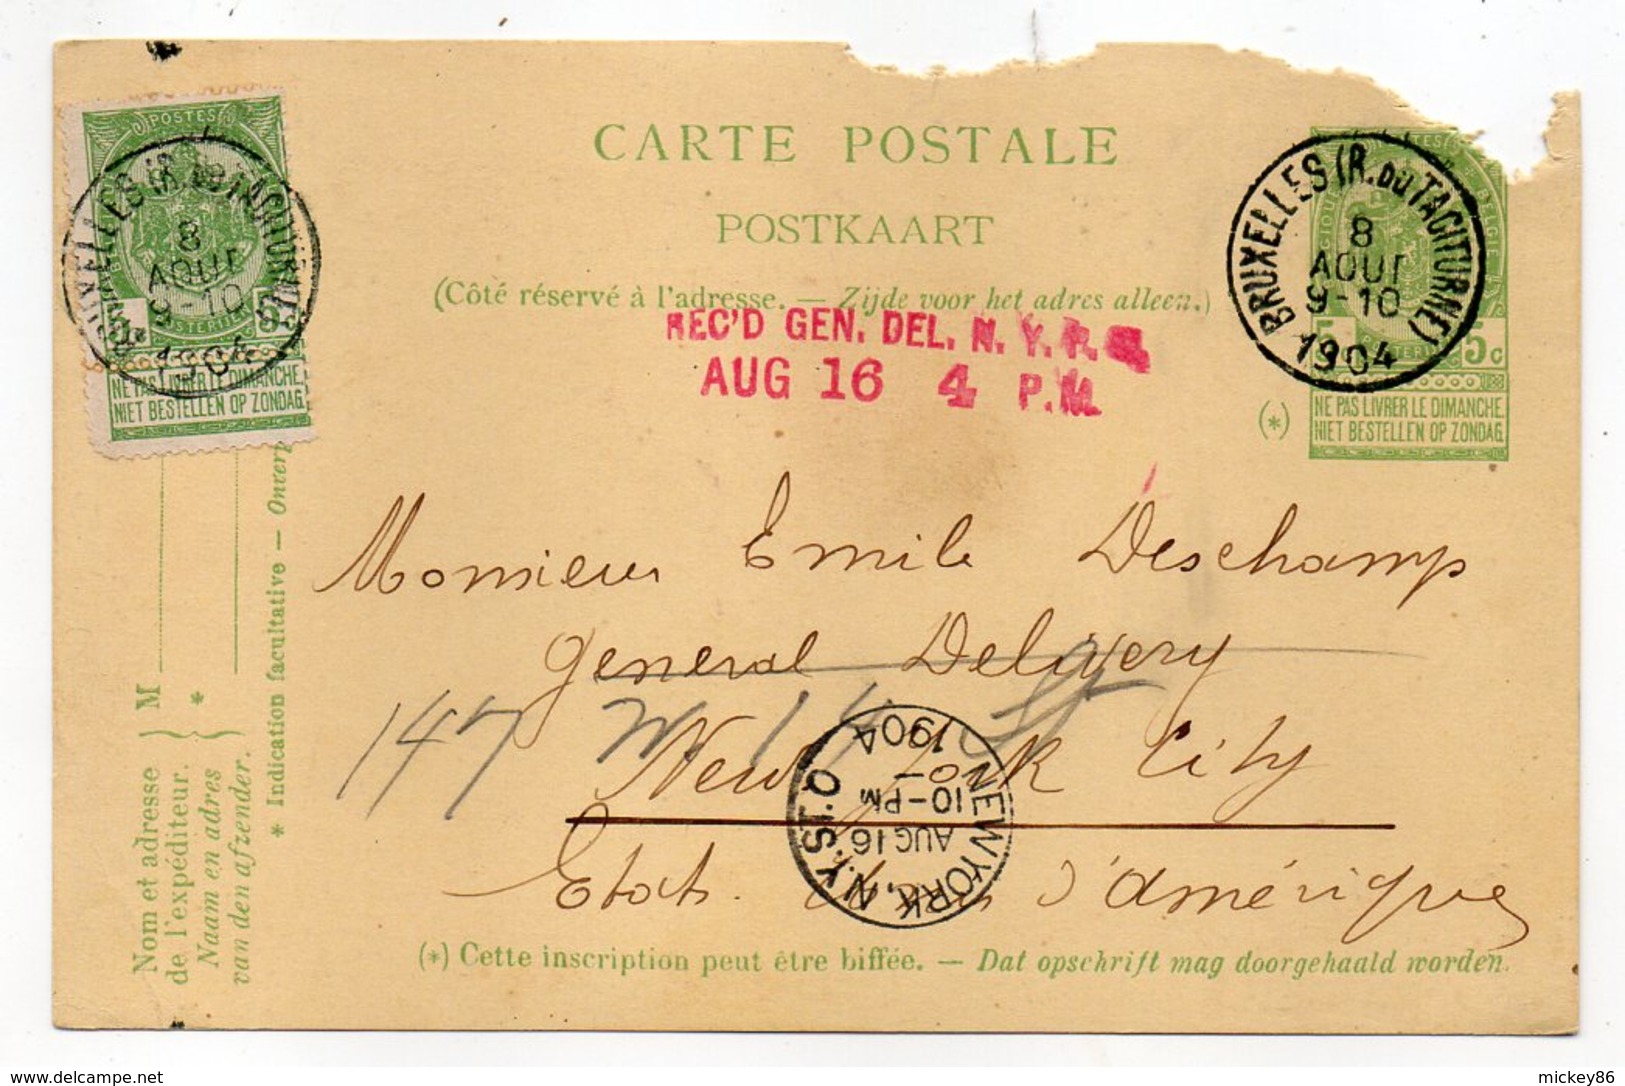 CARTE POSTALE
POSTKAART
(Côté réservé à l'adresse. — Zijde voor het adres alleen.)
REC'D GEN. DEL. N. Y. P.
AUG 16 4 P.M.
POSTES
8
AOUT
9-10
1904
5c
NE PAS LIVRER LE DIMANCHE.
NIET BESTELLEN OP ZONDAG.
BRUXELLES (R. DU TACITURNE)
8
AOUT
9-10
1904
5c
(*)
NE PAS LIVRER LE DIMANCHE.
NIET BESTELLEN OP ZONDAG.
Monsieur Emile Deschamp
General Delivery
147 W. 14 St
New York City
Etats Unis d'Amérique
NEW YORK, N.Y. STA. O
AUG 16
10-PM
1904
(*) Cette inscription peut être biffée. — Dat opschrift mag doorgehaald worden.
Nom et adresse
de l'expéditeur.
Naam en adres
van den afzender.
M
*
* Indication facultative —
www.delcampe.net
mickey86